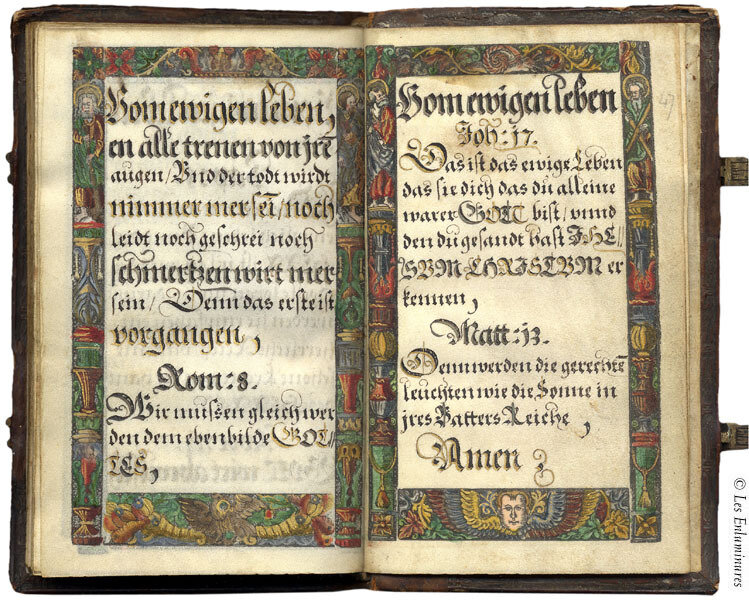 Vom ewigen leben,
en alle trenen von jrē
augen / Vnd der todt wirdt
nimmer mer sei / noch
leidt noch geschrei noch
schmertzen wirt mer
sein / Denn das erste ist
vorgangen,
Rom: 8.
Wir mussen gleich wer
den dem ebenbilde GOT
TES,
Vom ewigen leben
Joh: 17.
Das ist das ewige Leben
das sie dich das du alleine
warer GOTT bist / vnnd
den du gesandt hast JHE//
SVM CHRISTVM er
kennen,
Matt: 13.
Denn werden die gerechtē
leuchten wie die Sonne in
jres Vatters Reiche,
Amen
47
© Les Enluminures